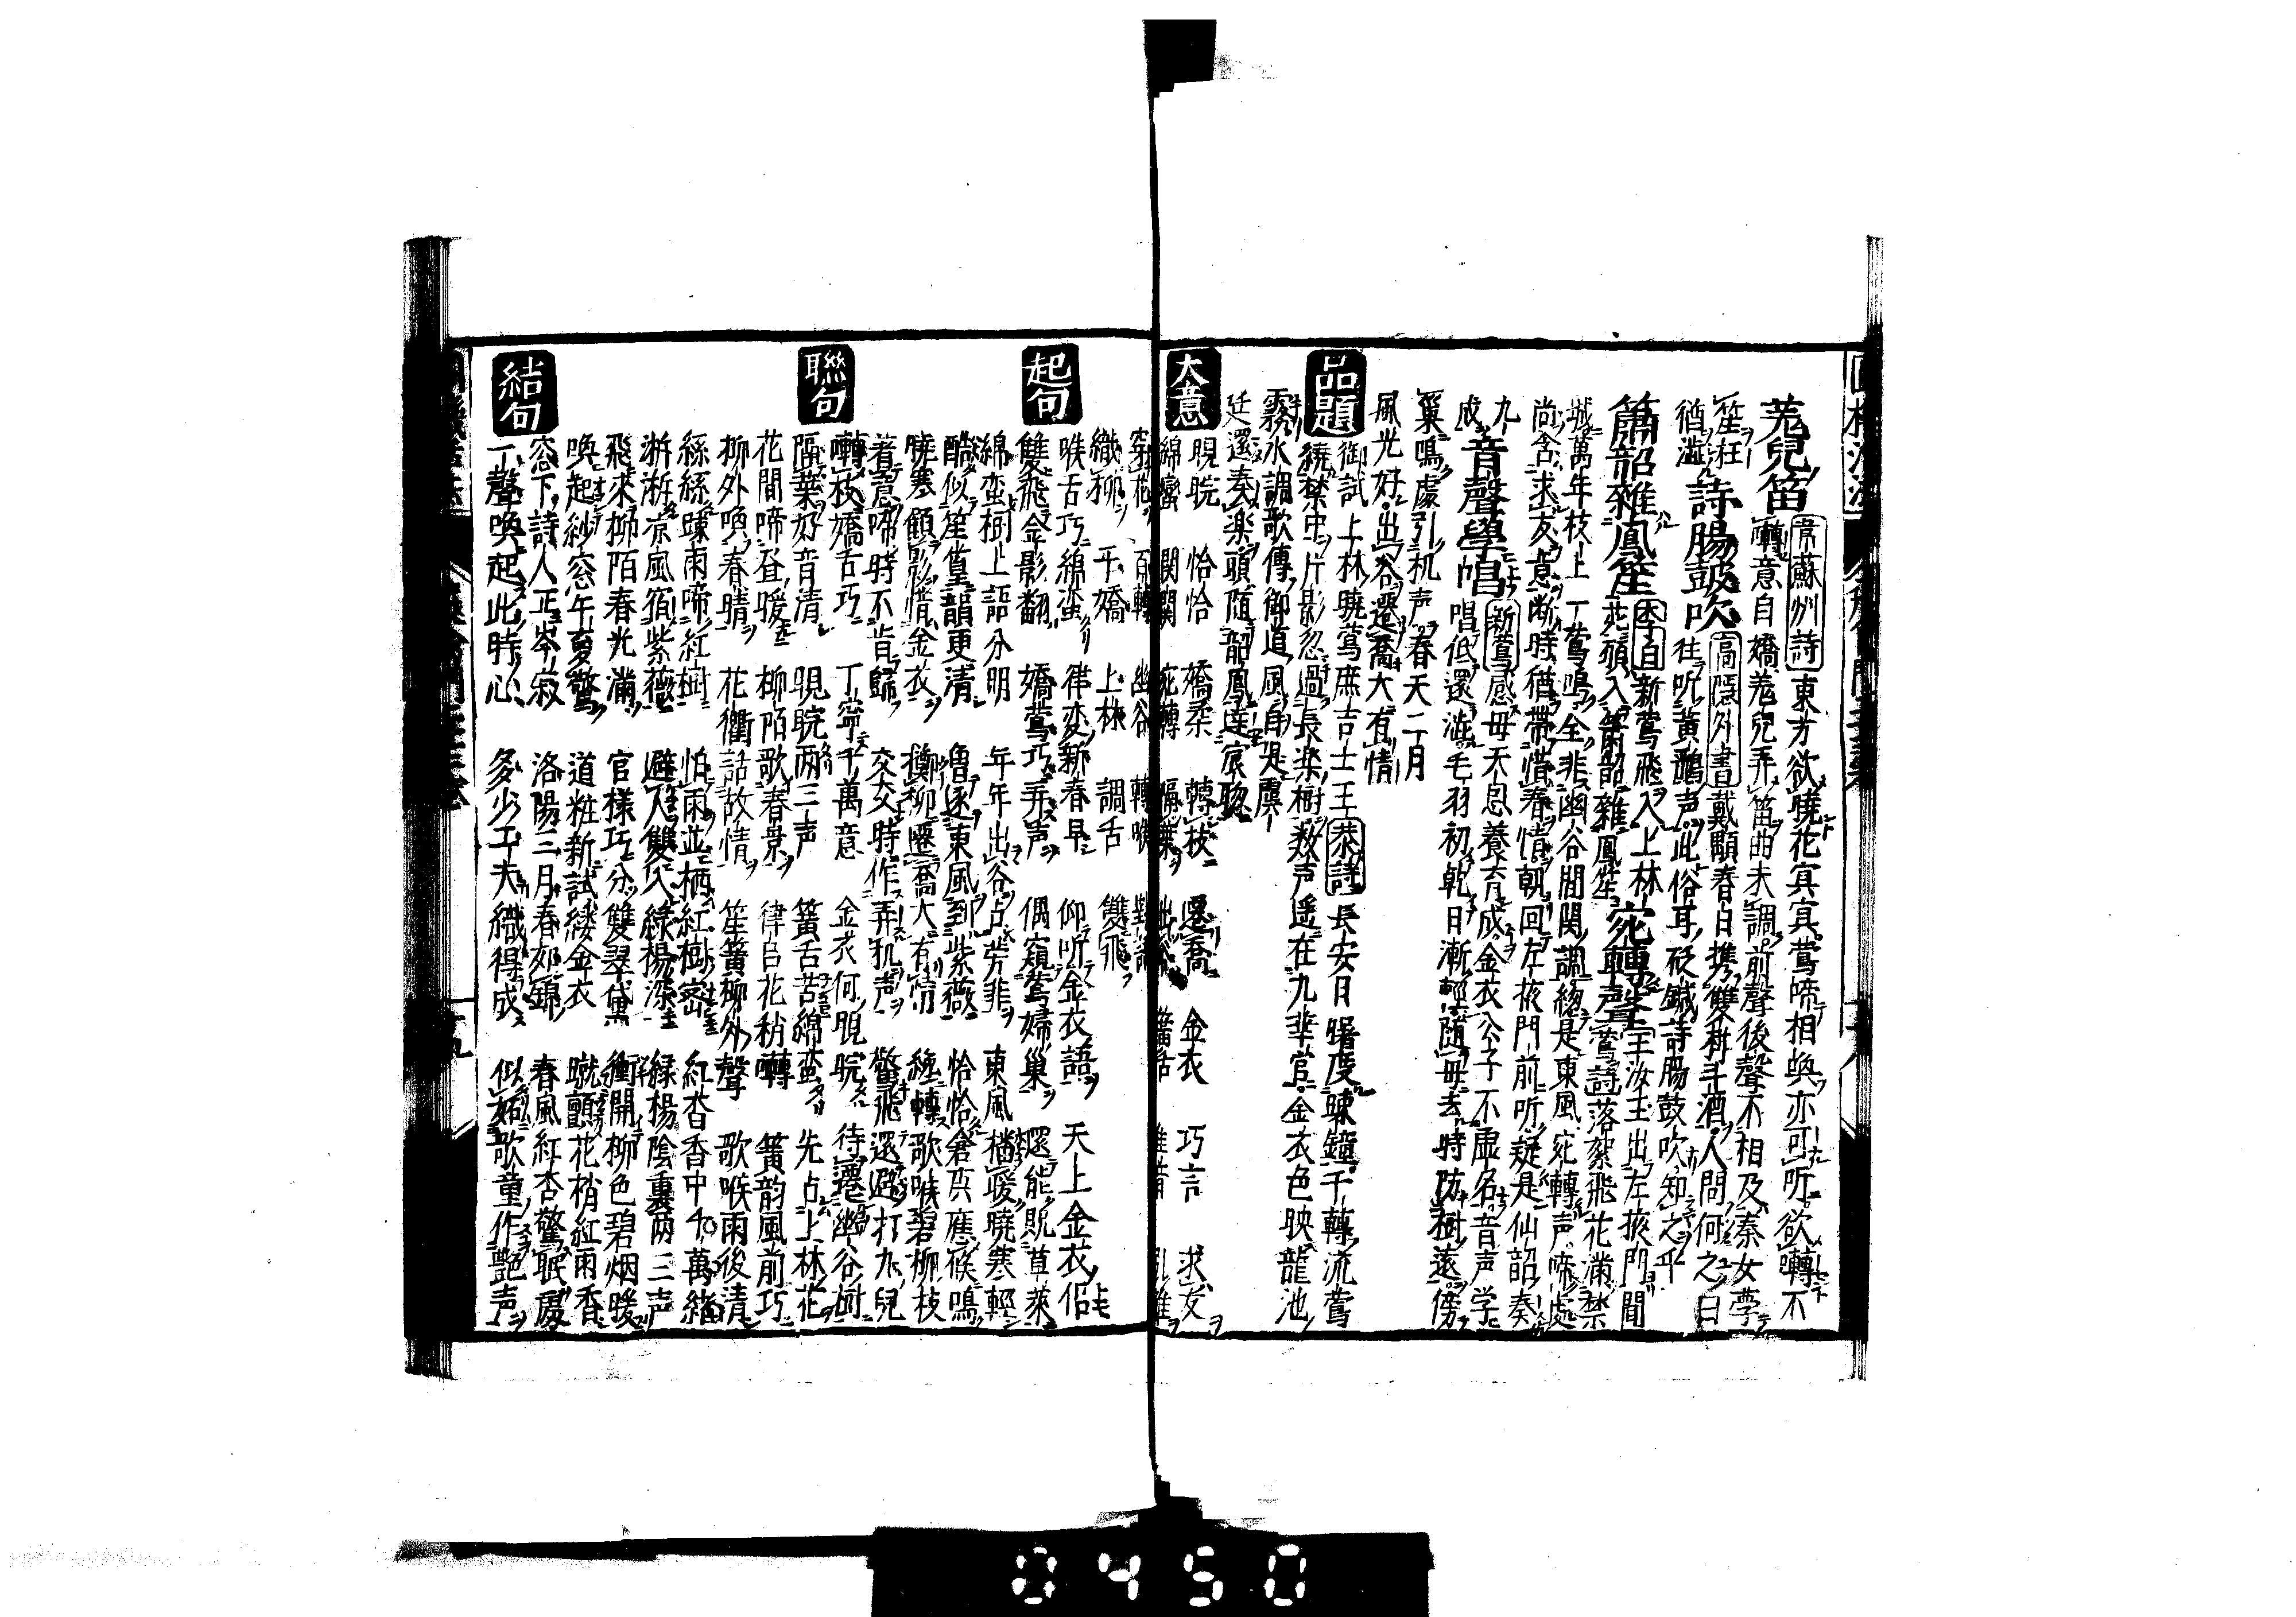 羌兒笛 韋蘇州詩 東方欲曉花冥冥鶯啼相喚亦可听欲囀不
囀意自嬌羌兒弄笛曲未調前聲後聲不相及秦女學
笙枉
猶澁 詩腸鼓吹 高隱外書 戴顒春日携雙柑斗酒人問何之曰
往听黄鸝声此俗耳砭鍼詩腸鼓吹知之乎
簫韶雜鳳笙 李白 新鶯飛入上林
苑頋入簫韶雜鳳笙 宛轉聲 王汝玉出左掖門聞
鶯詩落絮飛花滿禁
城萬年枝上一鶯鳴全非幽谷間関調緫是東風宛轉声啼處
尚含求友意断時猶帯惜春情朝回左掖門前听疑是仙韶奏
九
成 音聲學唱 新鶯 感母天恩養育成金衣公子不虚名音声学
唱低還澁毛羽初乾日漸輕随母去時防樹遠傍
巢鳴處引机声春天二月
風光好出谷遷喬大有情
品題 御試上林曉鶯庶吉士王 恭詩 長安日曙度踈鐘千轉流鶯
繞禁中片影忽過長楽樹数声遥在九華宫金衣色映龍池
霧水調歌傳御道風自是虞
廷還奏楽頭随韶鳳達宸聦
大意 睍睆 恰恰 嬌柔 轉枝 遷喬 金衣 巧言 求友
綿蠻 関関 宛轉 隔葉 出谷 簧舌
穿花 百轉 幽谷 轉喉
織柳 千嬌 上林 調舌 雙飛
起句 喉舌巧綿蛮 律变新春早 仰听金衣語 天上金衣侣
雙飛金影翻 嬌鶯巧弄声 偶窺鶯婦巢 還能脱草萊
綿蛮樹上語分明 年年出谷占芳菲 東風猶暖曉寒輕
酷似笙篁韻更清 曽逐東風到紫薇 恰恰倉庚應候鳴
曉寒顧影惜金衣 擲柳遷喬大有情 緫轉歌喉碧柳枝
著意啼時不肯歸 交交時作弄机声 驚飛還避打丸兒
聯句 囀枝嬌舌巧 丁寧千萬意 金衣何睍睆 待遷幽谷樹
隔葉好音清 睍睆两三声 簧舌苦綿蛮 先占上林花
花間啼昼暖 柳陌歌春景 律吕花稍囀 簧韵風前巧
柳外喚春晴 花衢話故情 笙簧柳外聲 歌喉雨後清
絲絲踈雨啼紅樹 怕雨並栖紅樹密 紅杏香中千萬緒
淅淅凉風宿紫薇 避人雙入緑楊深 緑楊陰裏两三声
飛來柳陌春光滿 官樣巧分雙翠黛 衝開柳色碧烟暖
喚起紗窓午夏驚 道粧新試縷金衣 蹴顫花梢紅雨香
結句 窓下詩人正岑寂 洛陽三月春如錦 春風紅杏驚眠處
一聲喚起此時心 多少工夫織得成 似妬歌童作艷声